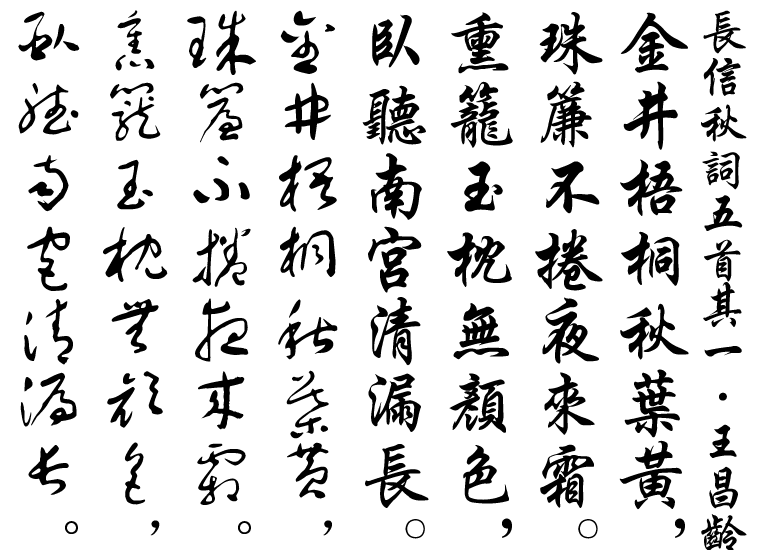 長信秋詞五首其一·王昌齡
金井梧桐秋葉黃,
珠簾不捲夜來霜。
熏籠玉枕無顏色,
臥聽南宮清漏長。
金井梧桐秋葉黃,
珠簾不捲夜來霜。
熏籠玉枕無顏色,
臥聽南宮清漏長。